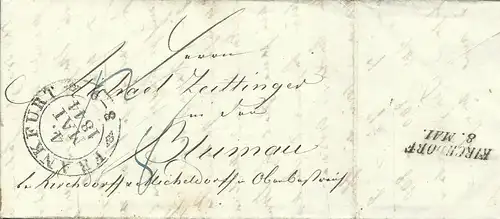 Herrn
Michael Zeitlinger
in der
Blumau
bei Kirchdorff u Micheldorff in OberOestreich
FRANKFURT
4. MAI
1844
KIRCHDORF
8 MAI